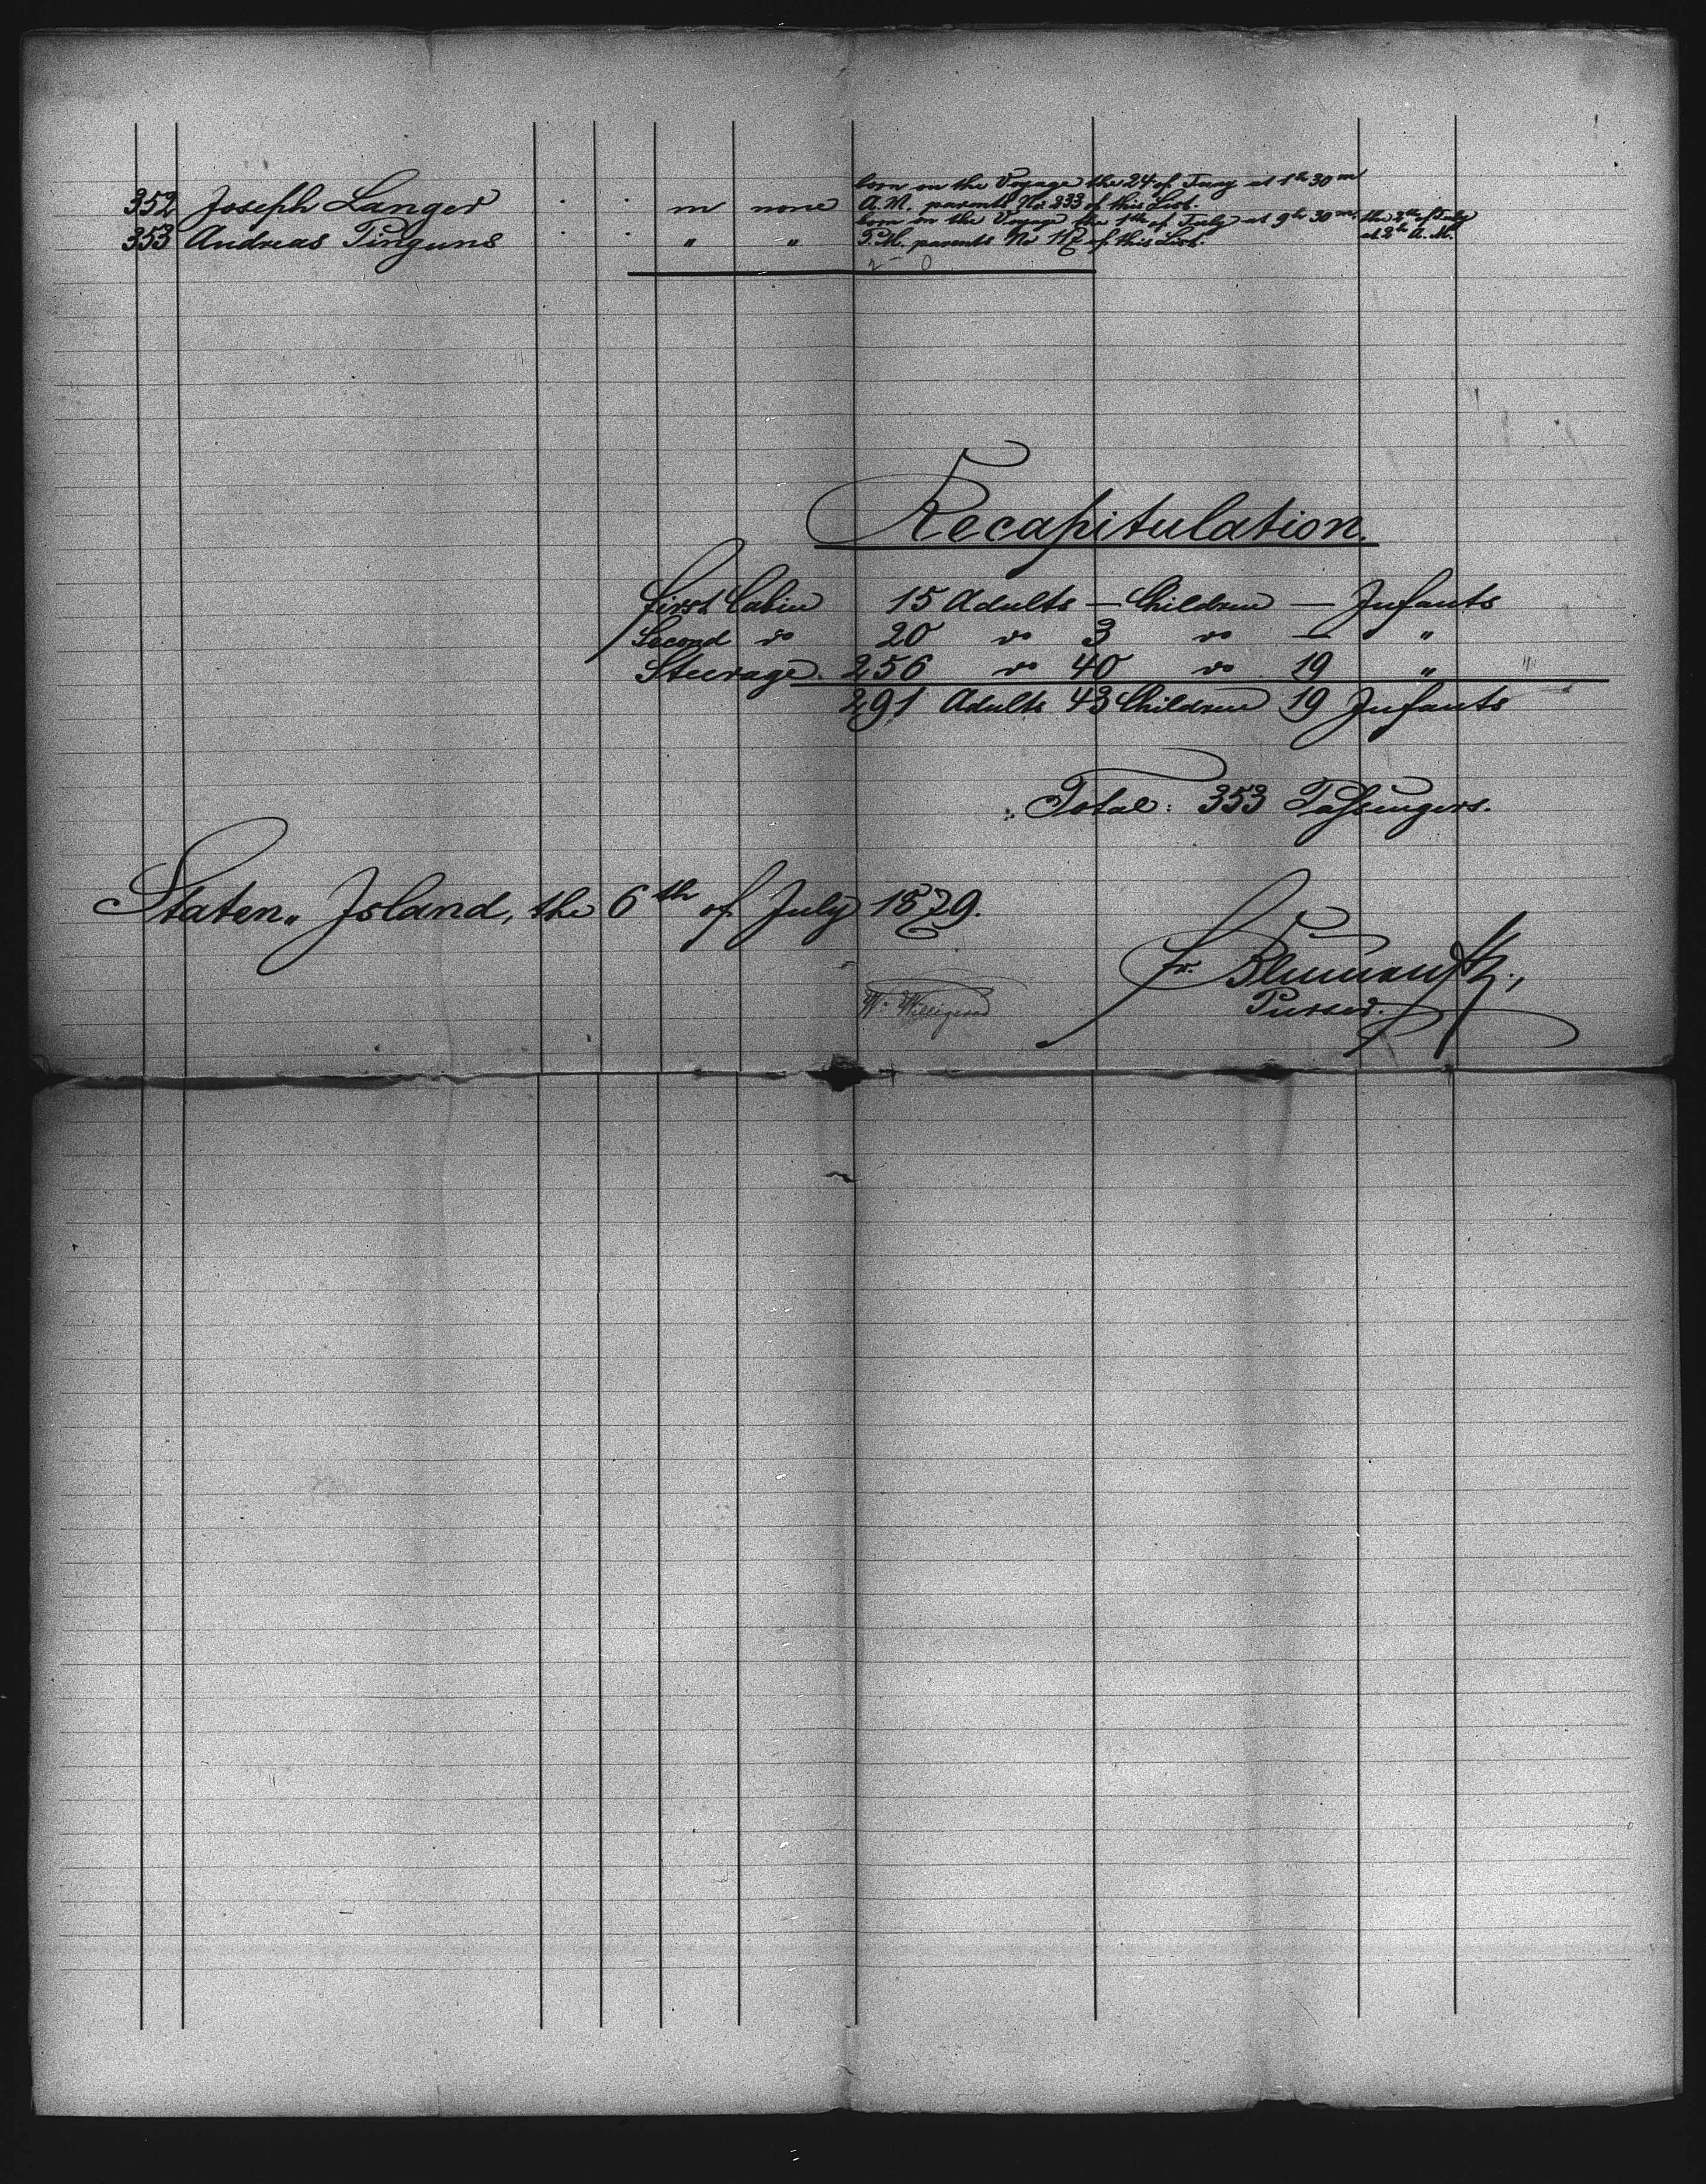 born on the Voyage the 24 of Juny at 1 h 30 m
352 Joseph Langer . . m none A.M. parents No. 233 of this List.
born on the Voyage the 1th of July at 9 h 30 m. the 2th of July
353 Andreas Pinguns . . " " P.M. parents No 117 of this List. at 2 h A.M.
2 - 0
Recapitulation.
First Cabin 15 Adults — Children — Infants
Second do 20 do 3 do — "
Steerage. 256 do 40 do 19 "
291 Adults 43 Children 19 Infants
Total: 353 Passengers.
Staten Island, the 6th of July 1879.
Fr.
W. Willigerod
Purser.